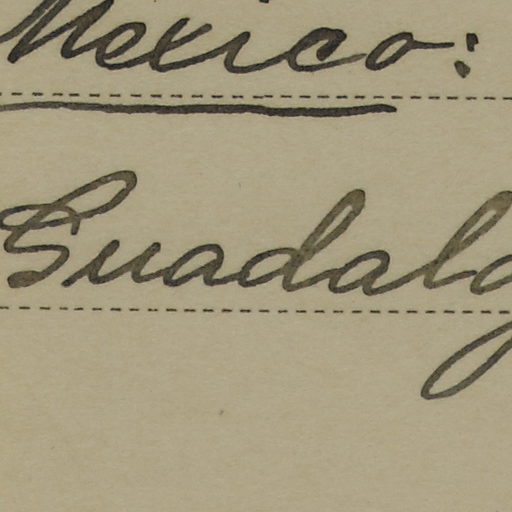 Mexico:
Guadal